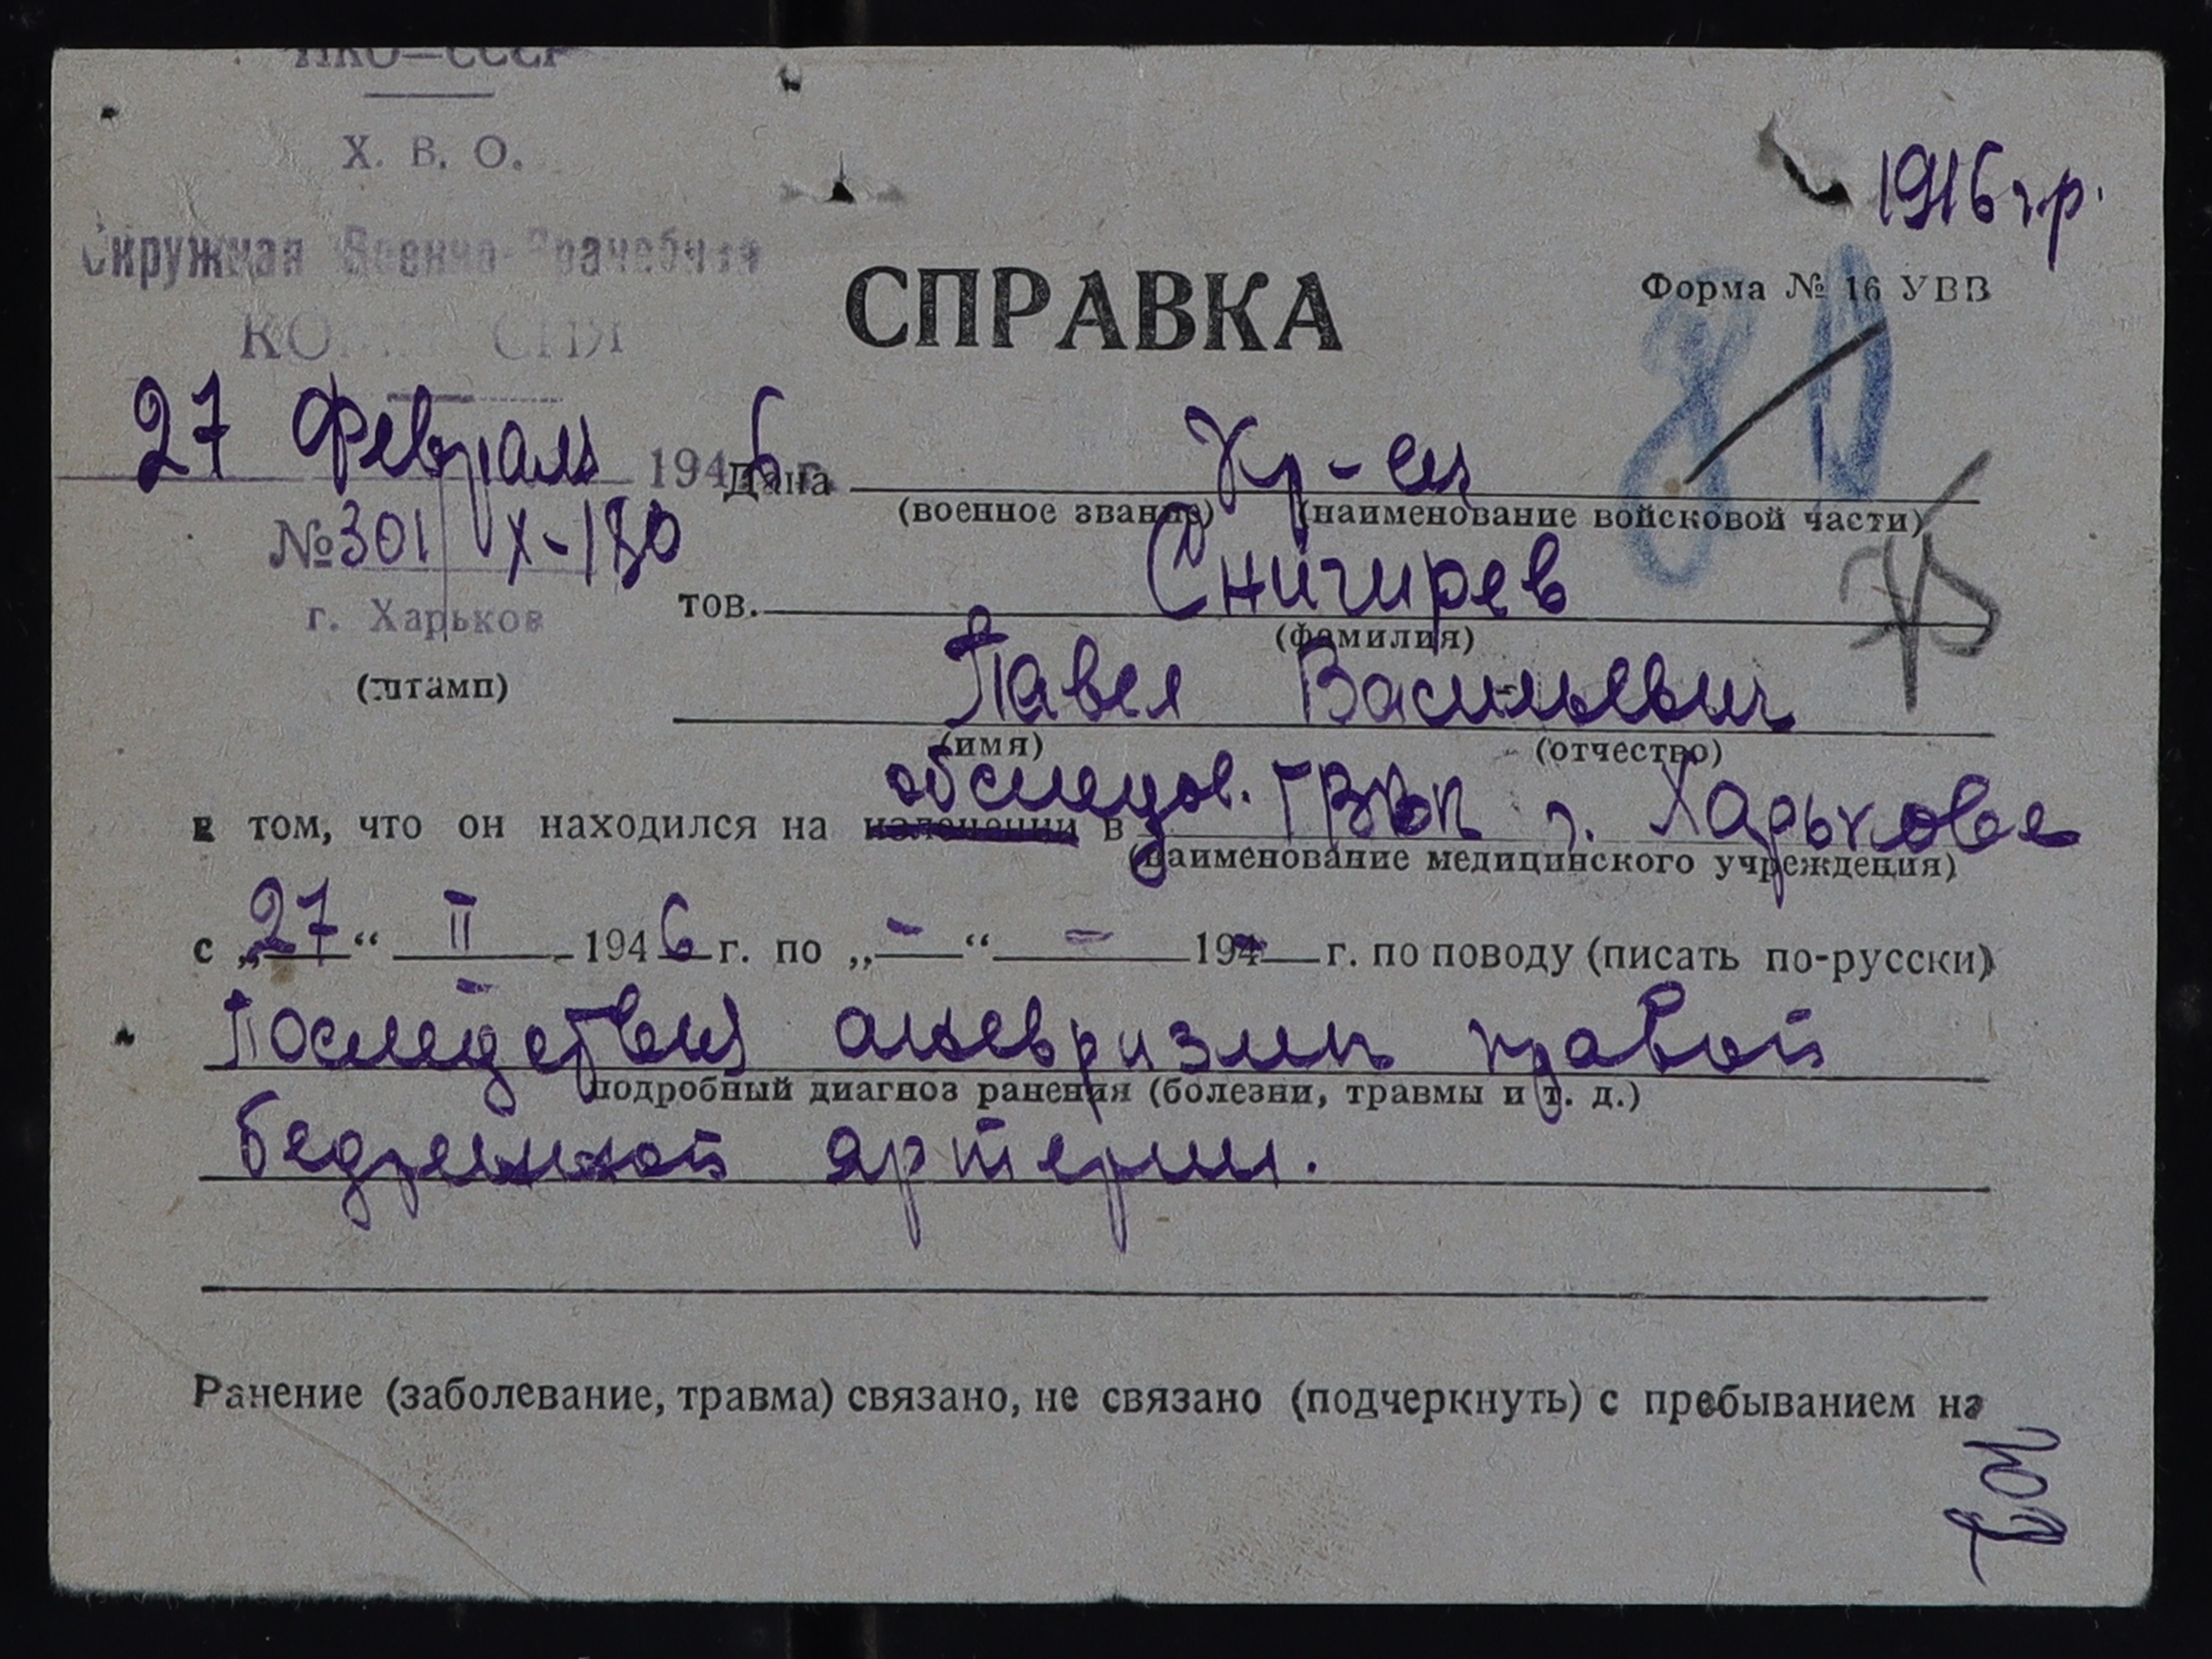 НКО—СССР
Х. В. О.
Окружная Военно-Врачебная
КОМИССИЯ
27 Февраля 1946 г.
№ 301 Х-180
г. Харьков
(штамп)
1916 г.р.
Форма № 16 УВВ
80
СПРАВКА
Дана Кр-ец
(военное звание) (наименование войсковой части)
75
тов. Снигирев
(фамилия)
Павел Васильевич
(имя) (отчество)
обследов.
в том, что он находился на излечении в ГВВК г. Харькова
(наименование медицинского учреждения)
с „27“ II 1946 г. по „—“ — 194— г. по поводу (писать по-русски)
Последствия аневризмы правой
подробный диагноз ранения (болезни, травмы и т. д.)
бедренной артерии.
Ранение (заболевание, травма) связано, не связано (подчеркнуть) с пребыванием на